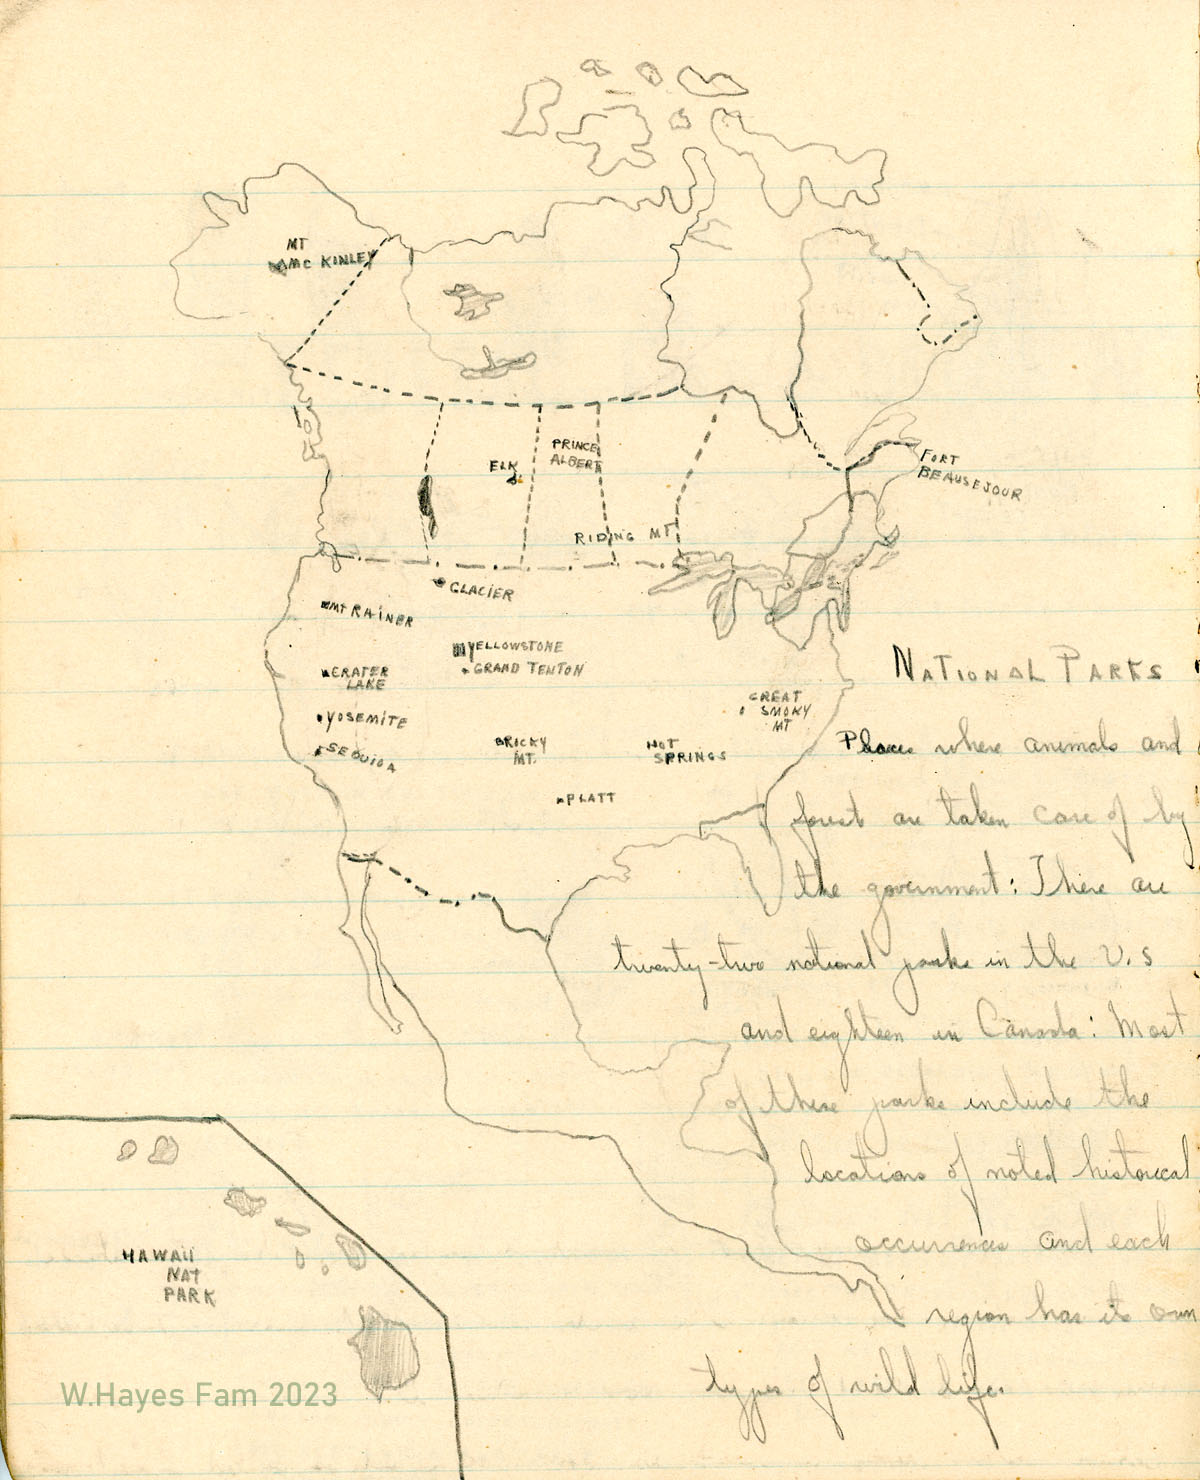 MT
MC KINLEY
PRINCE
ALBERT
ELK
FORT
BEAUSEJOUR
RIDING MT
GLACIER
MT RAINER
YELLOWSTONE
GRAND TENTON
CRATER
LAKE
YOSEMITE
SEQUIOA
GREAT
SMOKY
MT
BRICKY
MT.
HOT
SPRINGS
PLATT
NATIONAL PARKS
Places where animals and
forest are taken care of by
the government: There are
twenty-two national parks in the U.S
and eighteen in Canada: Most
of these parks include the
locations of noted historical
occurrences and each
region has its own
types of wild life.
HAWAII
NAT
PARK
W.Hayes Fam 2023